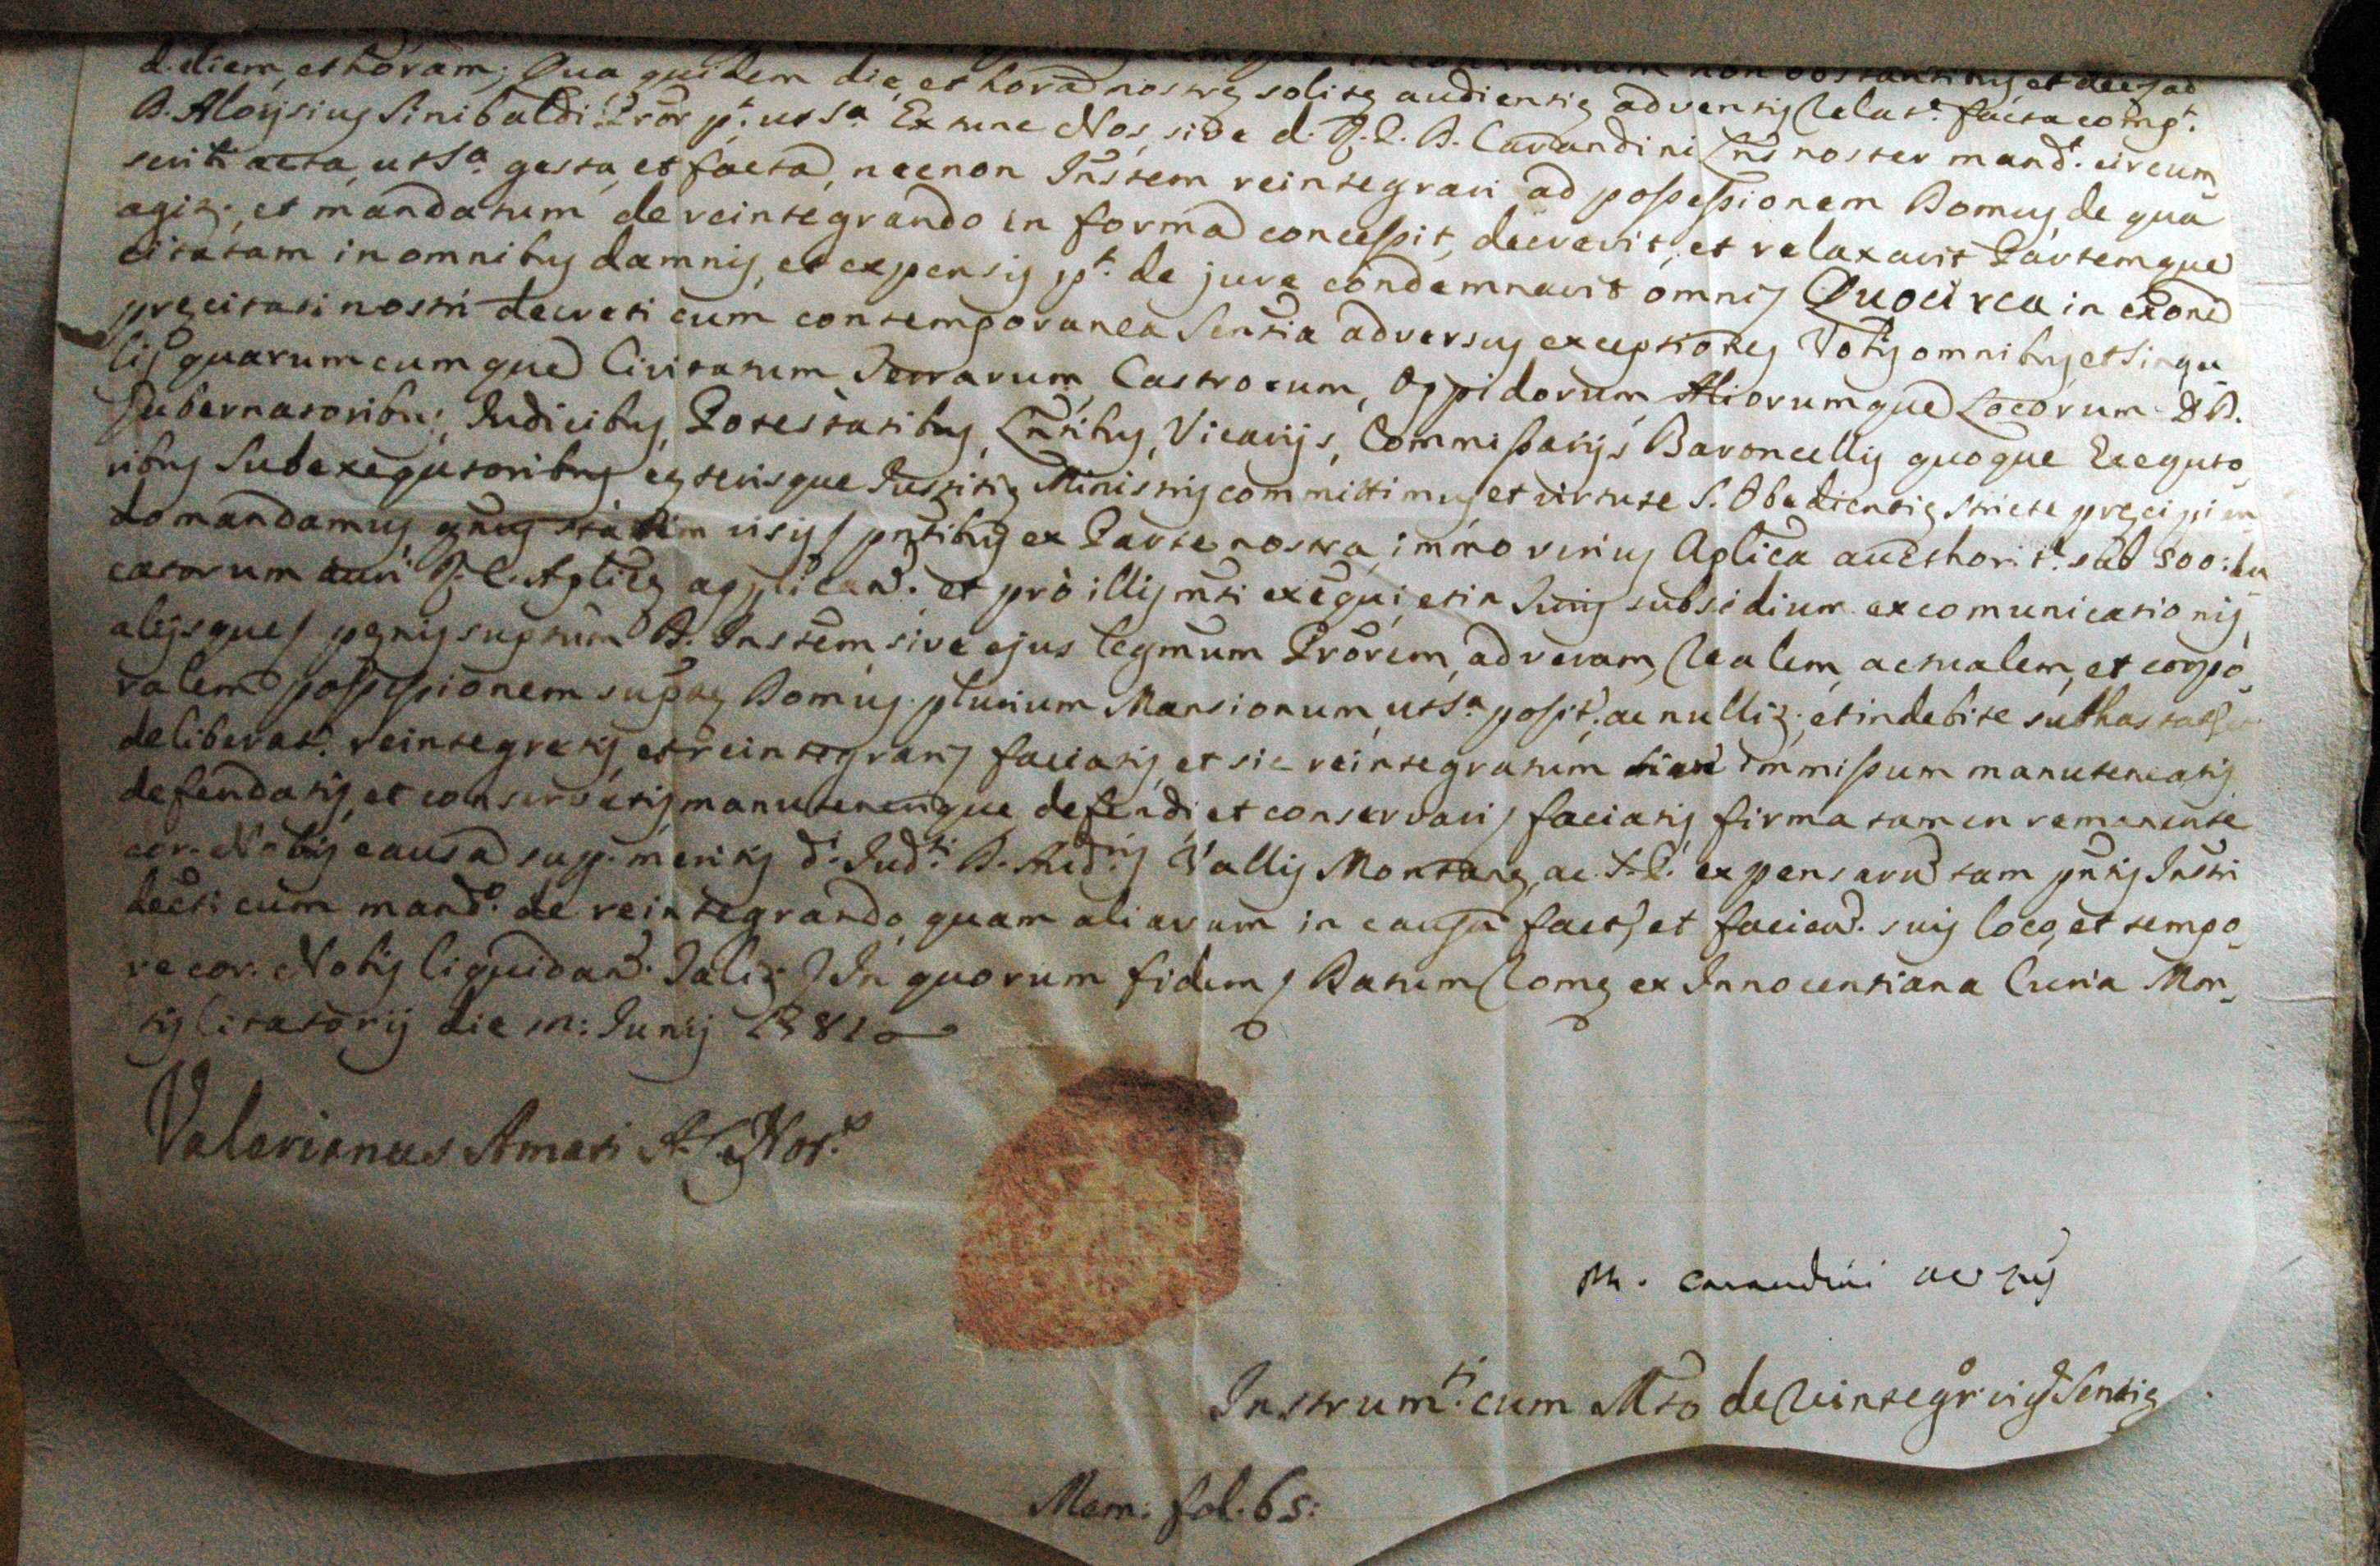 d. diem, et horam; Qua quidem die, et hora nostrę solitę audientię adventis Relat.e facta comp.t
D. Aloysius Sinibaldi Prõr p.t utsa. Ex tunc Nos, sive d. R. P. D. Carandini Lñs noster mand.t circum
agi acta, utsa. gesta, et facta, necnon Iñstem reintegrari ad possessionem Domus, de qua
agit.r, et mandatum de reintegrando in forma concessit, decrevit, et relaxavit Partemque
citatam in omnibus damnis, et expensis p.t de jure condemnavit omnis Quocirca in exõne
pręcitati nostri decreti cum contemporanea Sent̃ia adversus exceptiones Vobis omnibus et singu
lis quarumcumque Civitatum Terrarum, Castrorum, Oppidorum Aliorumque Locorum DD.
Gubernatoribus, Judicibus, Potestatibus, Lñtibus, Vicarijs, Commissarijs Baroncellis quoque Exequto
ribus Subexequtoribus cęterisque Justitię Ministris committimus et virtute S. Obedientię stricte pręcipien
do mandamus, statim visis pñtibus ex Parte nostra, immo verius Aplica aucthorit.e sub 500: du
catorum auri R. C. Aplicę applicand. et pro illis mti exequi, et in Juris subsidium excomunicationis,
alijsque pęnis suptum D. Instem, sive ejus legmum Prõrem, ad veram, Realem, actualem, et corpo
ralem possessionem supᵗę Domus plurium Mansionum, utsa. posit., ac nullit.r, et indebite subhastat
deliberat. reintegretis, et reintegrari faciatis, et sic reintegratum immissum manuteneatis
defendatis, et conservetis, manutenerique defendi, et conservari faciatis firma tamen remanente
cor. Nobis causa sup. meritis d. Jud.ti D. Vallis Montanę, ac expensarum tam pñtis Insti
decti cum mand.o de reintegrando, quam aliarum in causa fact., et faciend. suis loco, et tempo
re cor. Nobis liquidand. Talit.r In quorum fidem Datum Romę ex Innocentiana Curia Mon
tis Citatorij die Junij 1781
Valerianus Amati A. C. Not.s
M. Carandini
Instrum.ti cum Mto de Reintegr vig.e Sentię
Mem: fol. 65: